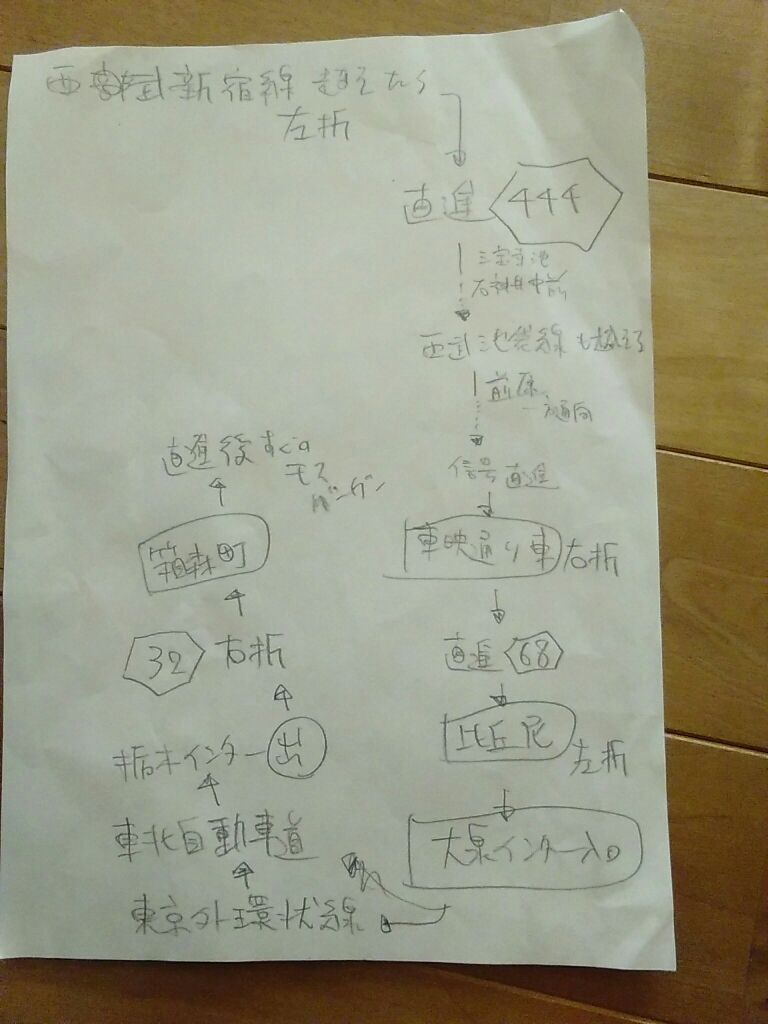 西武新宿線越えたら
左折
直進 444
三宝寺池
石神井中前
西武池袋線も越える
前原
一方通向
信号直進
東映通り東 右折
直進 68
比丘尼
左折
大泉インター入口
東京外環状線
東北自動車道
栃木インター 出
32 右折
箱森町
直進後すぐの
モス
バーガー